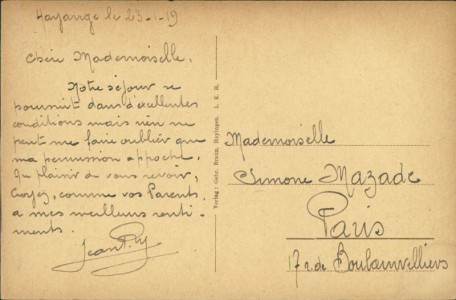 Hayange le 23-1-19
Chère Mademoiselle,
Notre séjour se
poursuit dans d'excellentes
conditions mais rien ne
peut me faire oublier que
ma permission approche.
Au plaisir de vous revoir,
Croyez, comme vos Parents
a mes meilleurs senti-
ments.
Verlag: Gebr. Hayingen. L. E. R.
Mademoiselle
Simone Mazade
Paris
17 r. de Boulainvilliers